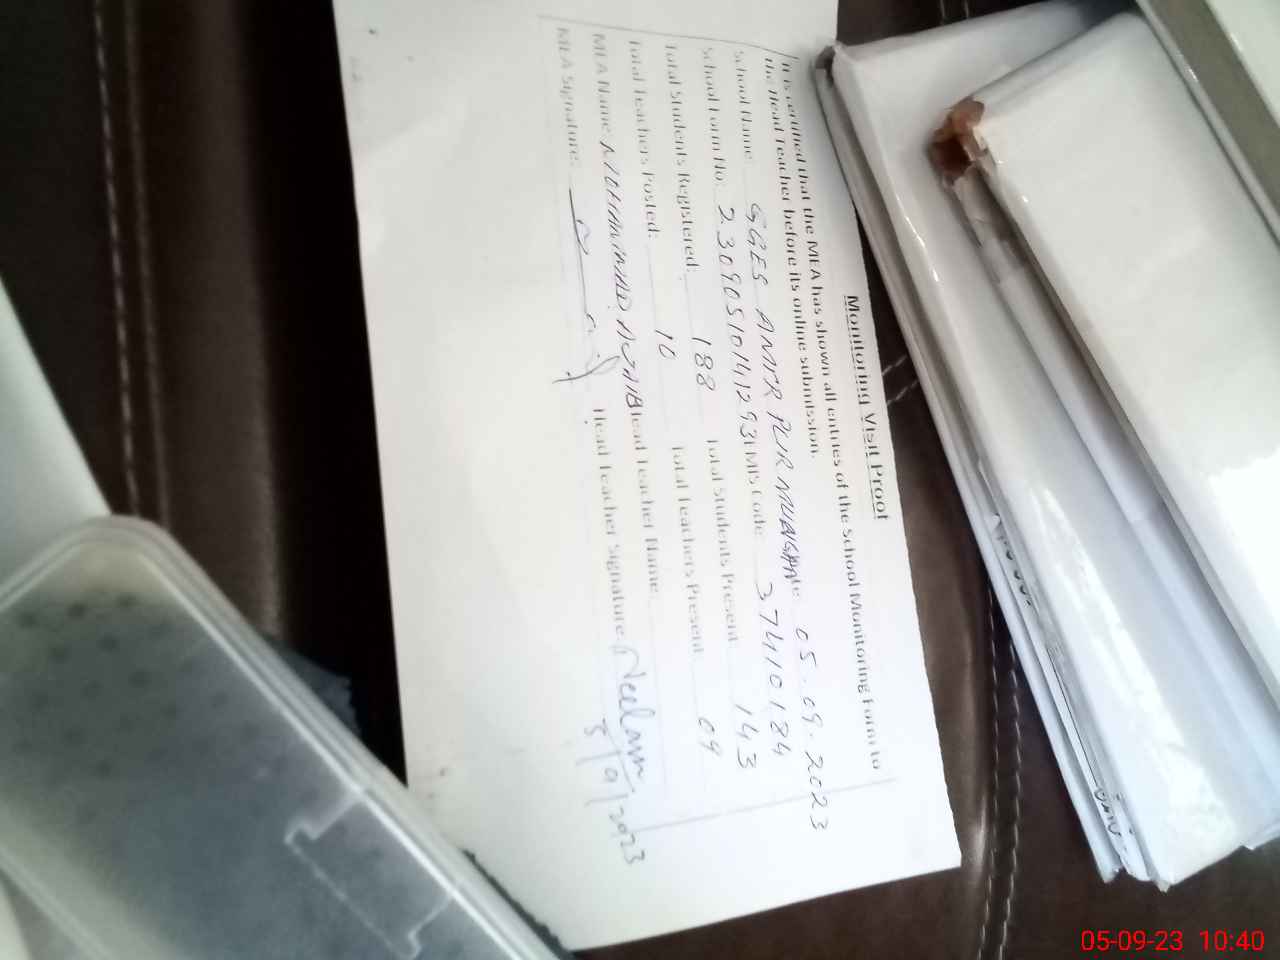 Monitoring Visit Proof
It is certified that the MEA has shown all entries of the School Monitoring Form to
the Head Teacher before its online submission.
School Name: GGES AMIR PUR Date: 05.09.2023
School Form No: 2309051014129 EMIS Code: 37410184
Total Students Registered: 188 Total Students Present: 143
Total Teachers Posted: 10 Total Teachers Present: 09
MEA Name: MUHAMMAD Head Teacher Name:
MEA Signature: Head Teacher Signature: Neelam
5/9/2023
05-09-23 10:40